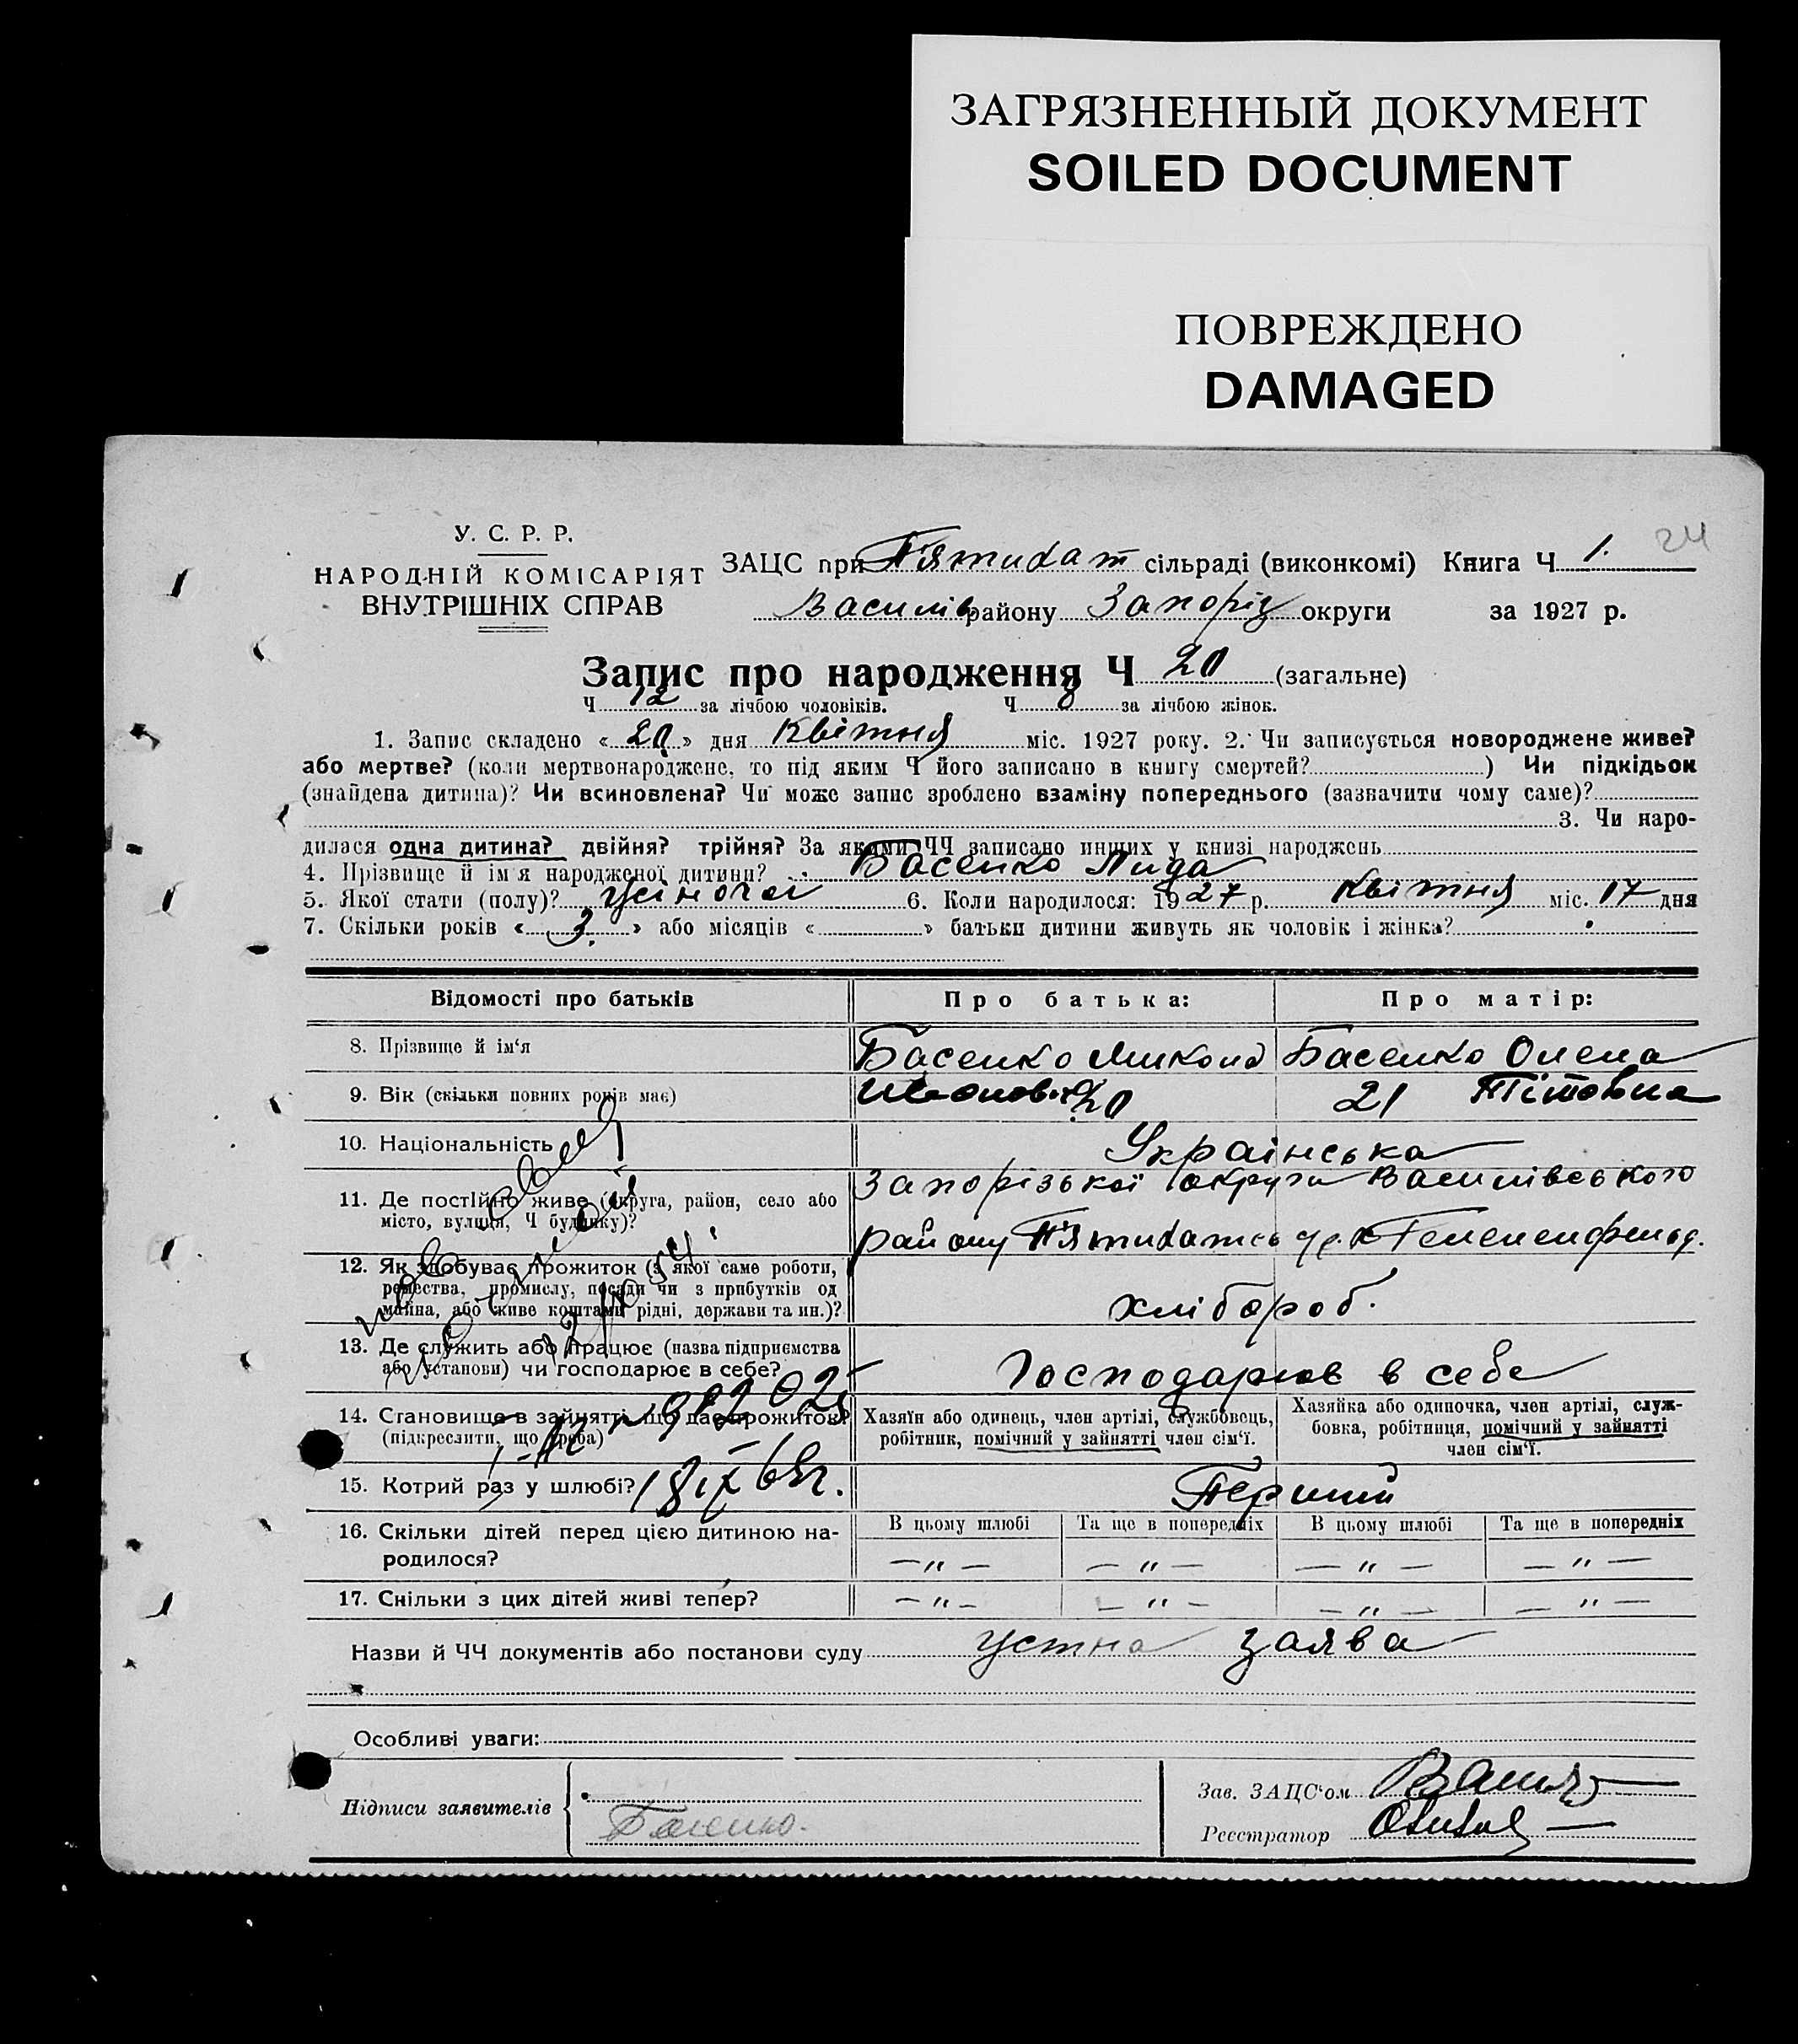 ЗАГРЯЗНЕННЫЙ ДОКУМЕНТ
SOILED DOCUMENT
ПОВРЕЖДЕНО
DAMAGED
24
У. С. Р. Р.
НАРОДНІЙ КОМІСАРІЯТ
ВНУТРІШНІХ СПРАВ
ЗАЦС при П'ятихат сільраді (виконкомі) Книга Ч 1.
Василів району Запоріз округи за 1927 р.
Запис про народження Ч 20 (загальне)
Ч 12 за лічбою чоловіків. Ч 8 за лічбою жінок.
1. Запис складено « 20 » дня Квітня міс. 1927 року. 2. Чи записується новороджене живе?
або мертве? (коли мертвонароджене, то під яким Ч його записано в книгу смертей? ) Чи підкідьок
(знайдена дитина)? Чи всиновлена? Чи може запис зроблено взаміну попереднього (зазначити чому саме)?
3. Чи наро-
дилася одна дитина? двійня? трійня? За якими ЧЧ записано инших у книзі народжень
4. Прізвище й ім'я народженої дитини? Басенко Лида
5. Якої стати (полу)? 6. Коли народилося: 1927 р. Квітня міс. 17 дня
7. Скільки років « 3. » або місяців « » батьки дитини живуть як чоловік і жінка?
Відомості про батьків Про батька: Про матір:
8. Прізвище й ім'я Басенко Микола Басенко Олена
9. Вік (скільки повних років має) 20 21 Тітовна
10. Національність Українська
11. Де постійно живе (округа, район, село або Запорізької округи Василівського
місто, вулиця, Ч будинку)? району П'ятихатсь
12. Як здобуває прожиток (з якої саме роботи,
ремества, промислу, посади чи з прибутків од
майна, або живе коштами рідні, держави та ин.)? хлібороб.
13. Де служить або працює (назва підприємства
або установи) чи господарює в себе? Господарює в себе
14. Становище в зайнятті, що дає прожиток?
(підкреслити, що треба)
Хазяїн або одинець, член артілі, службовець,
робітник, помічний у зайнятті член сім'ї.
Хазяйка або одиночка, член артілі, служ-
бовка, робітниця, помічний у зайнятті
член сім'ї.
15. Котрий раз у шлюбі? Перший
16. Скільки дітей перед цією дитиною на-
родилося?
В цьому шлюбі Та ще в попередніх В цьому шлюбі Та ще в попередніх
— „ — — „ — — „ — — „ —
17. Скільки з цих дітей живі тепер? — „ — — „ — — „ — — „ —
Назви й ЧЧ документів або постанови суду устна заява
Особливі уваги:
Підписи заявителів Басенко.
Зав. ЗАЦС'ом
Реєстратор